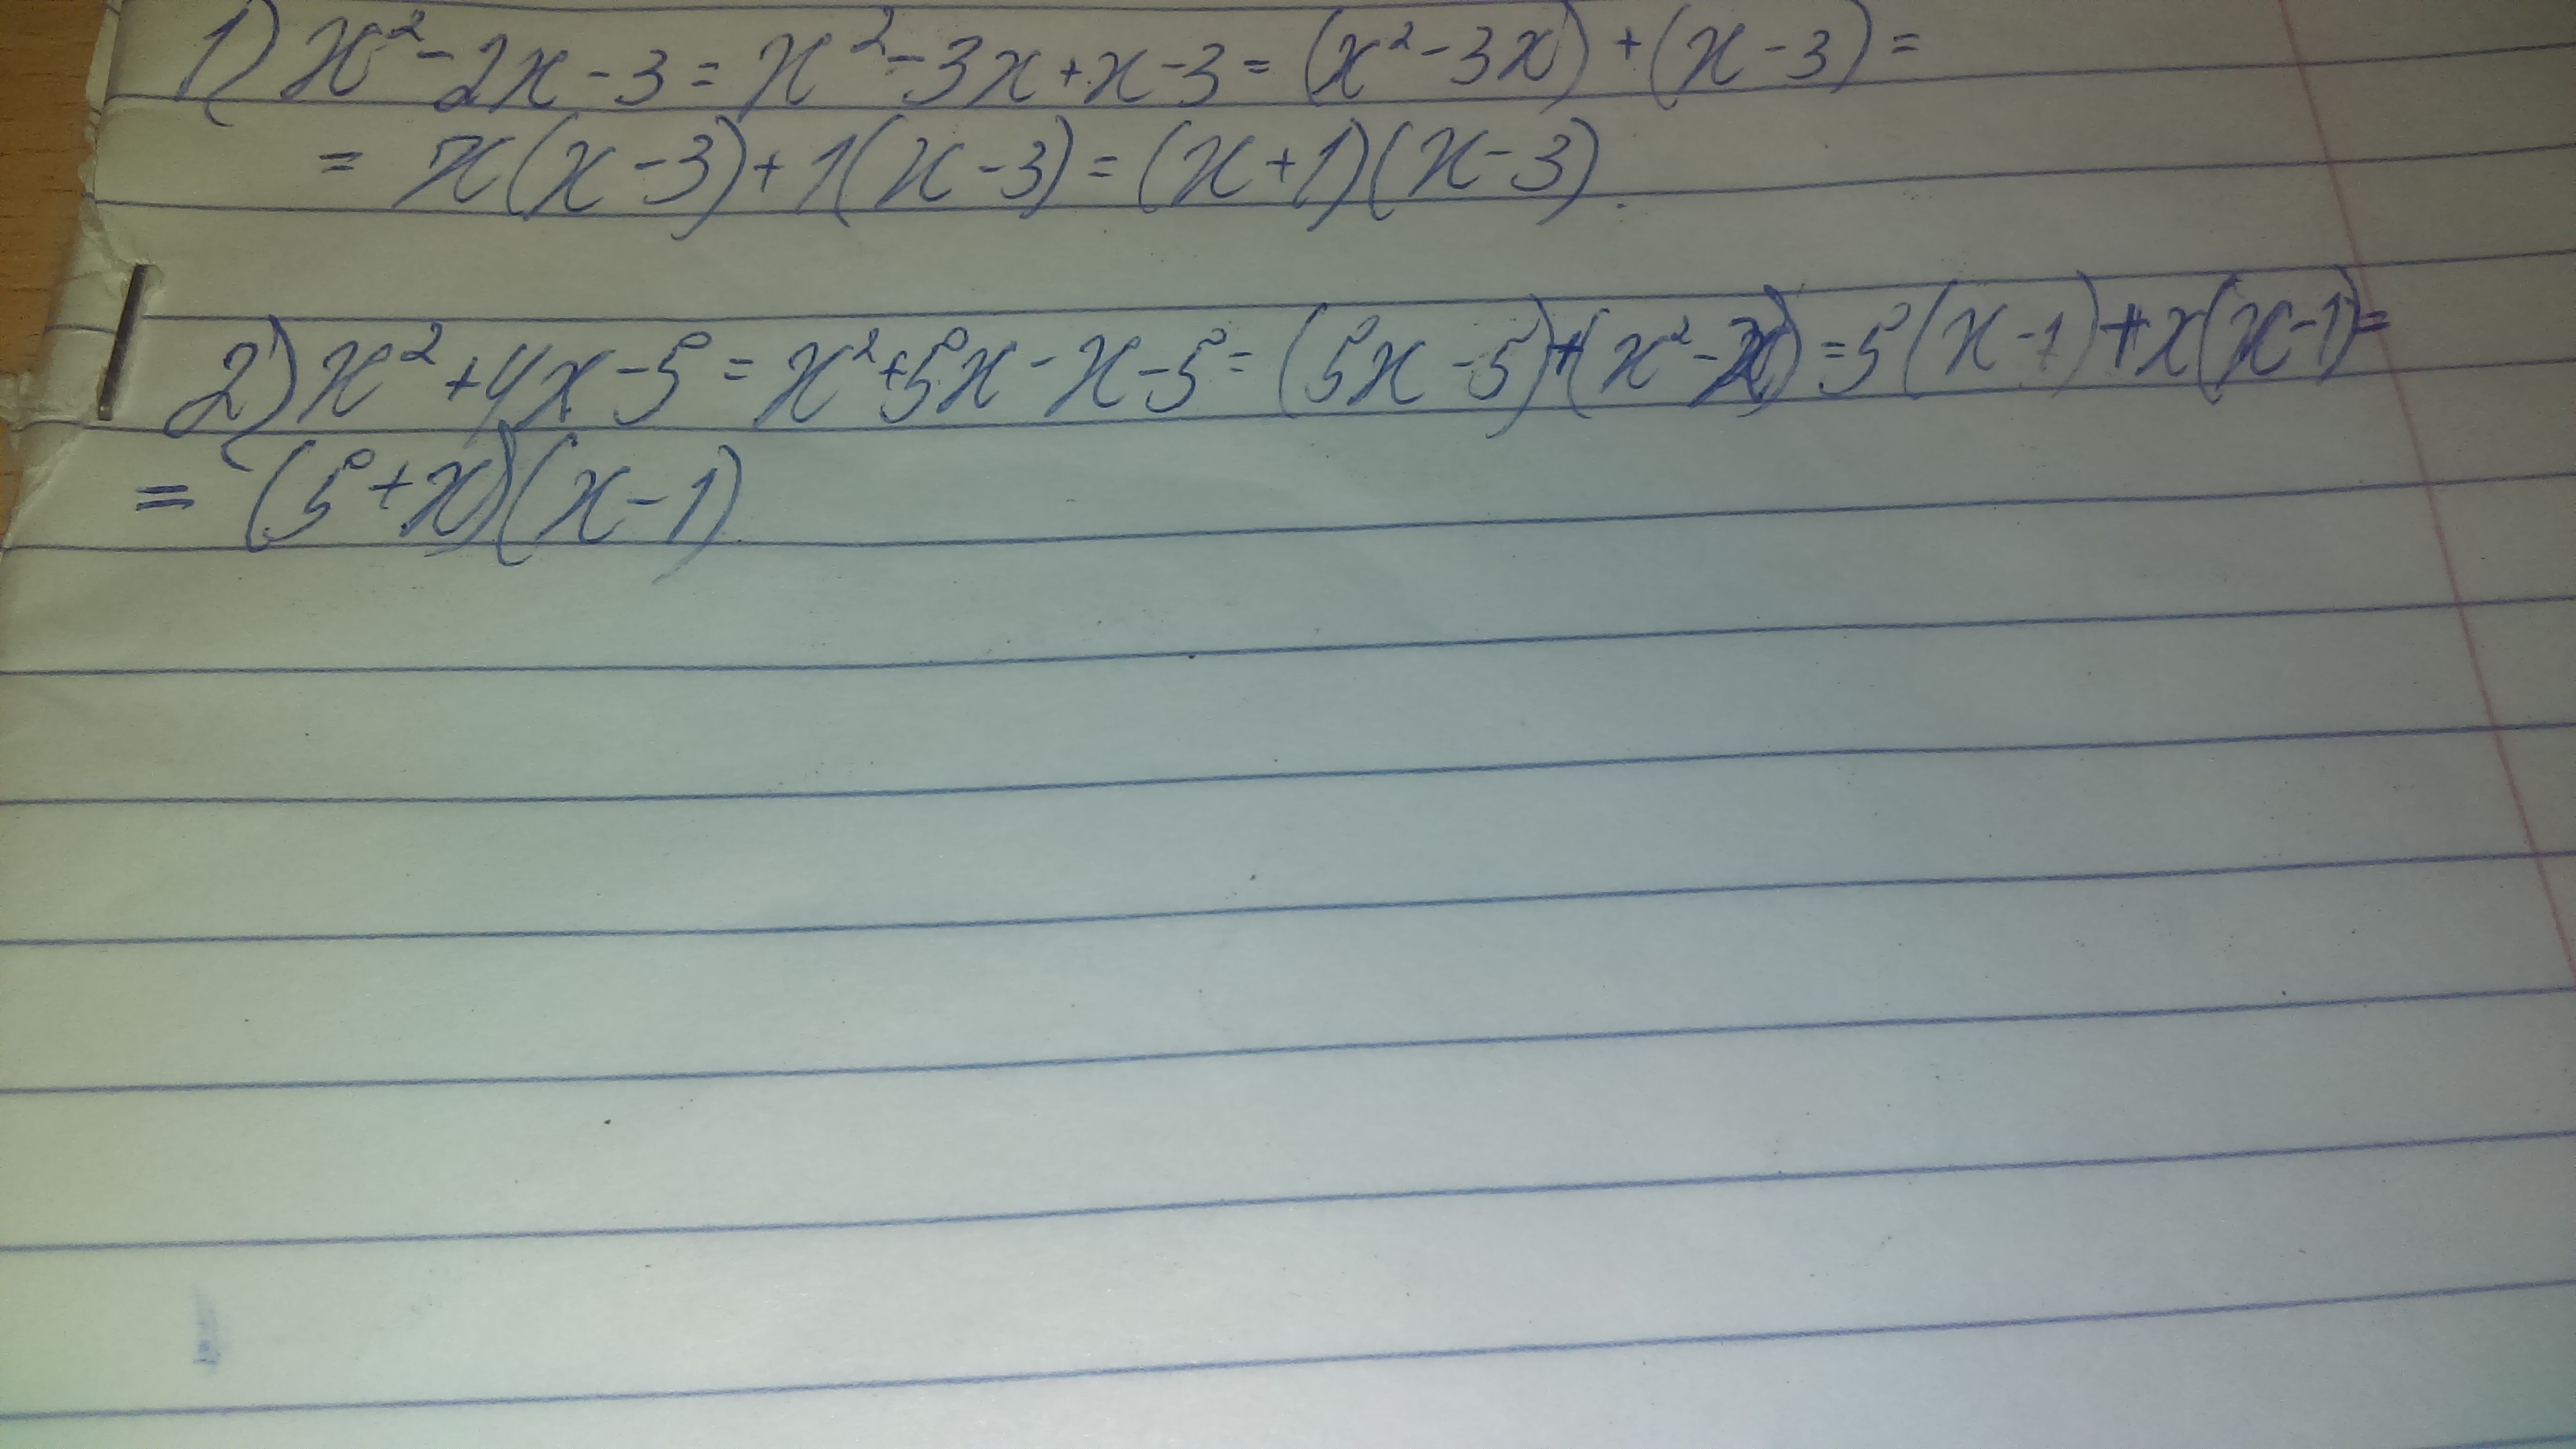 1) x² - 2x - 3 = x² - 3x + x - 3 = (x² - 3x) + (x - 3) =
= x(x - 3) + 1(x - 3) = (x + 1)(x - 3).
2) x² + 4x - 5 = x² + 5x - x - 5 = (5x - 5) + (x² - x) = 5(x - 1) + x(x - 1) =
= (5 + x)(x - 1).